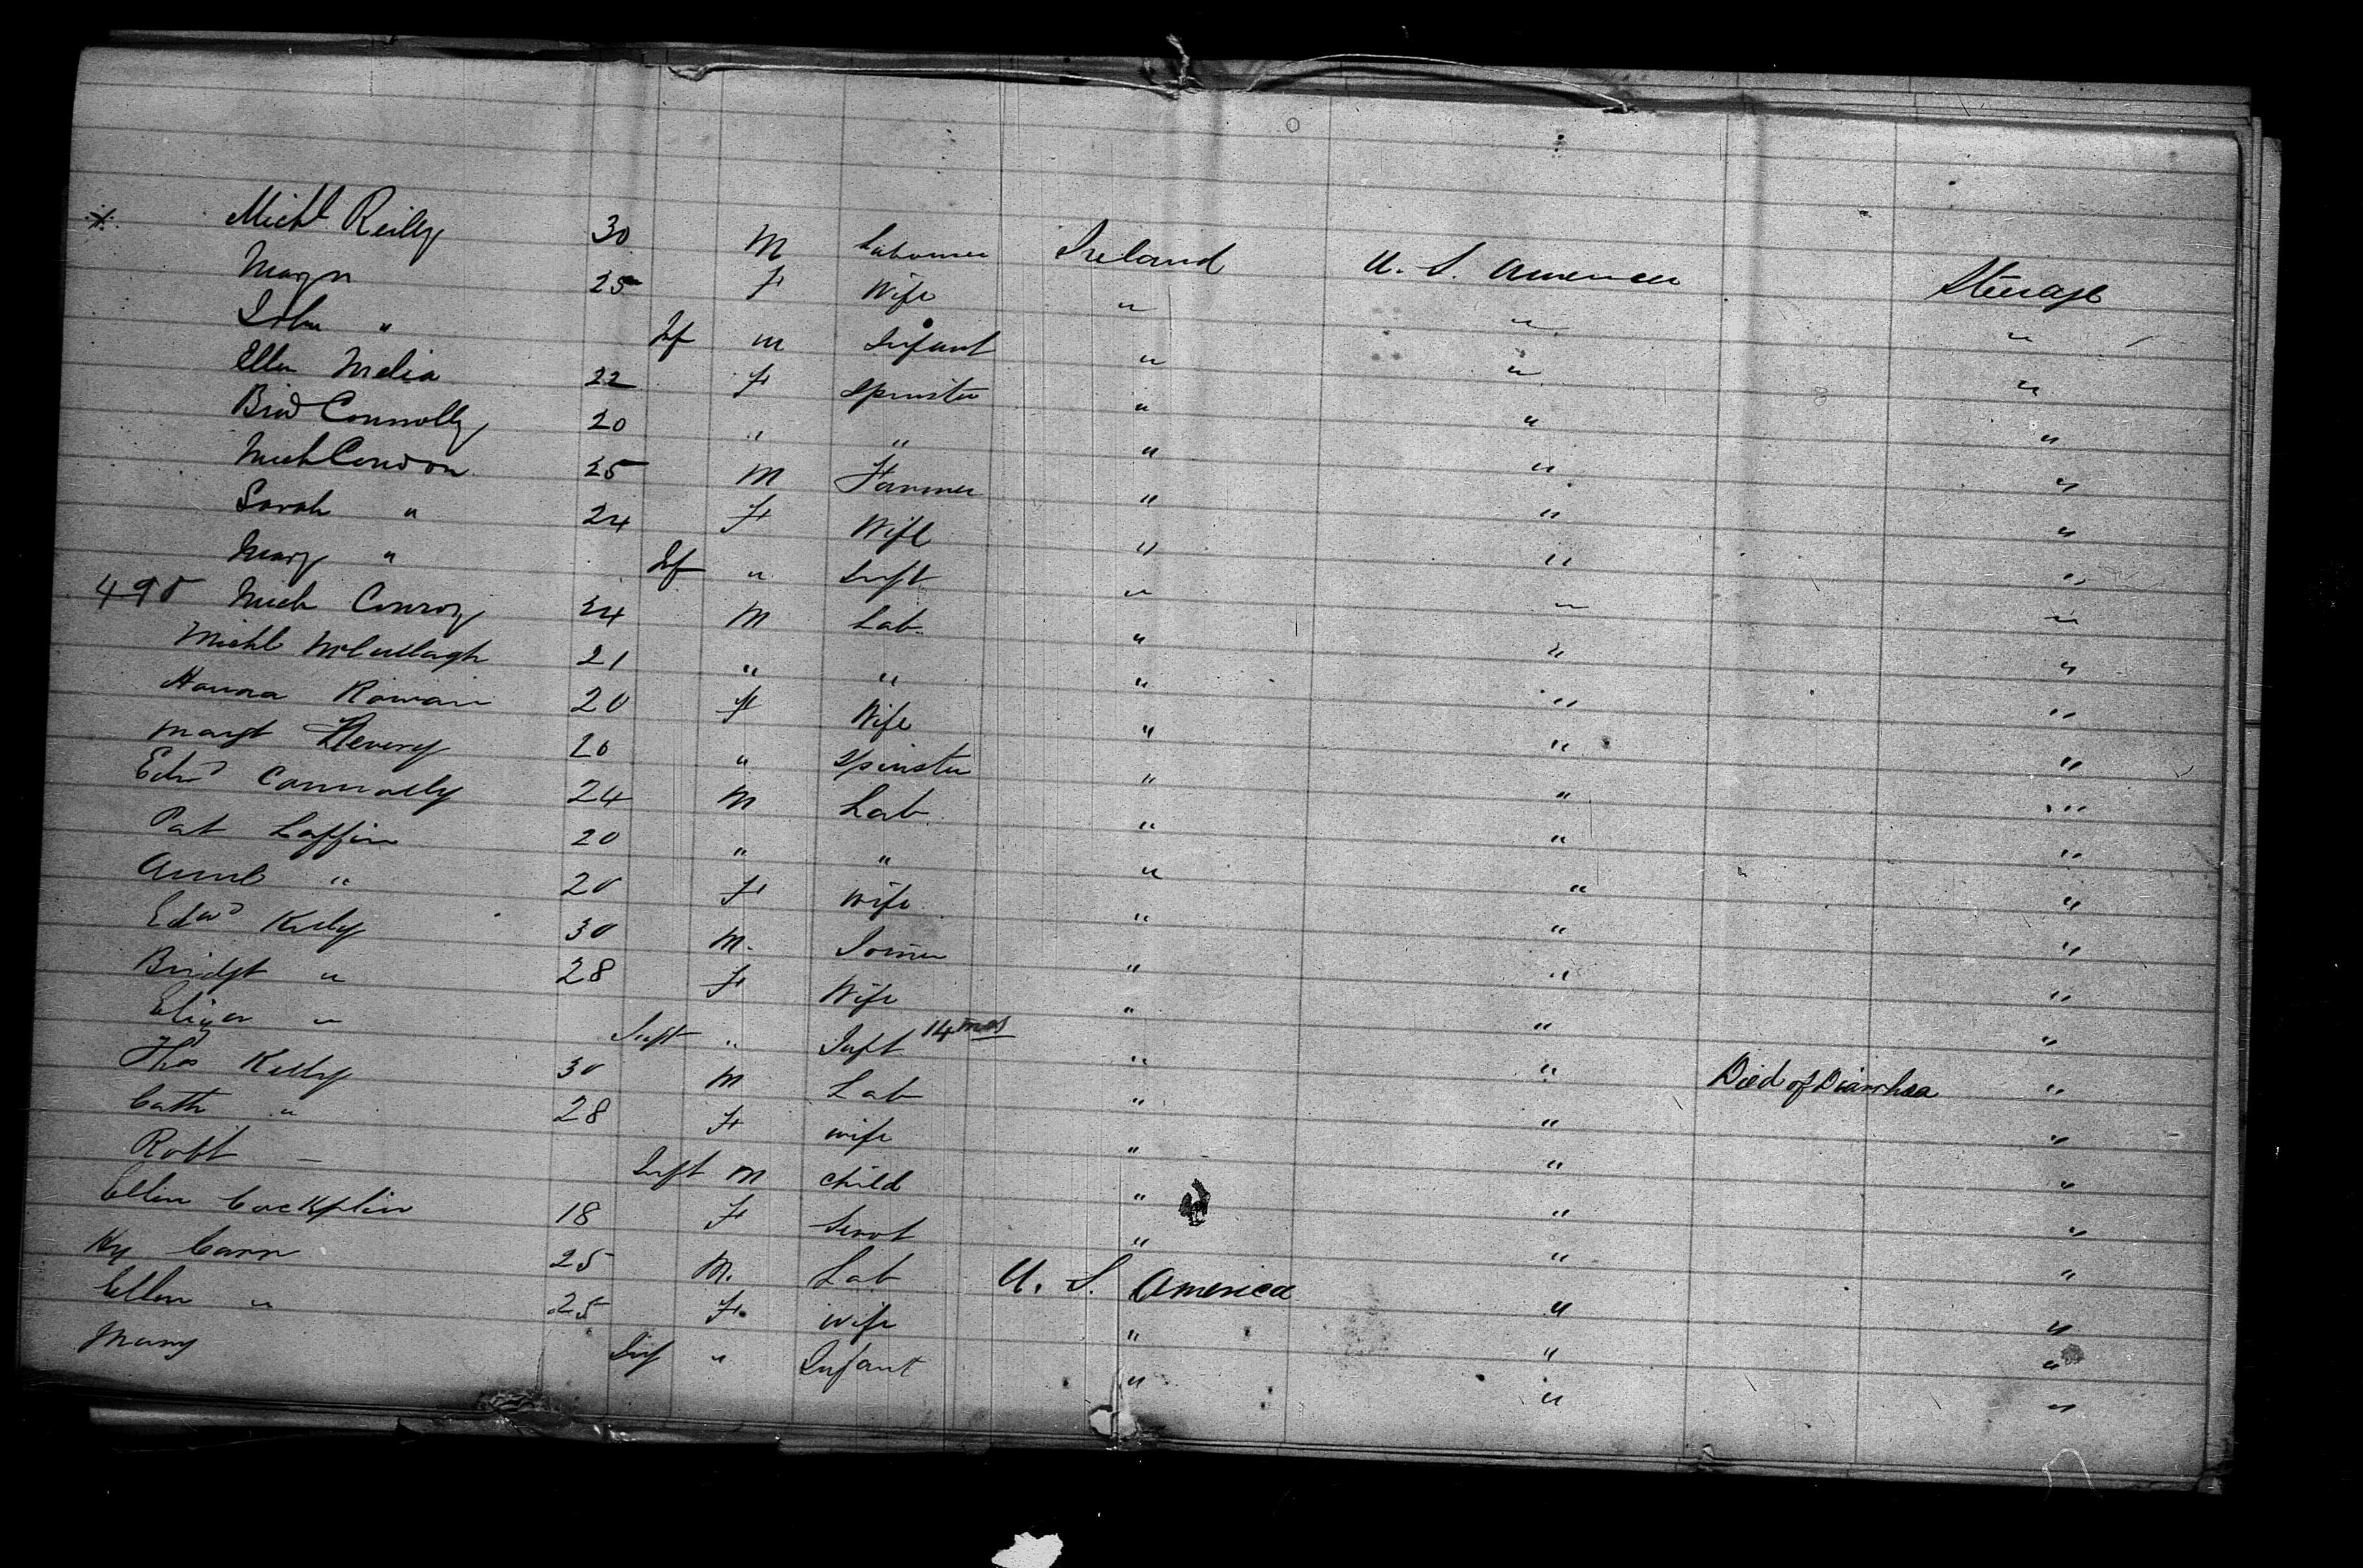 Michl Reilly 30 M Labourer Ireland U. S. America Steerage
Mary " 25 F Wife " " "
John " Inf m Infant " " "
Ellen Melia 22 F Spinster " " "
Brid Connolly 20 " " " " "
Mich Condon 25 M Farmer " " "
Sarah " 24 F Wife " " "
Mary " Inf " Inft " " "
490 Mich Conroy 24 M Lab. " " "
Michl McCullagh 21 " " " " "
Honora Rowan 20 F Wife " " "
Margt 20 " Spinster " " "
Edwd Connolly 24 M Lab " " "
Pat Laffin 20 " " " " "
Anne " 20 F Wife " " "
Edwd Kelly 30 M. Joiner " " "
Bridgt " 28 F Wife " " "
Eliza " Inft " Inft 14 mos " " Died of Diarrhea "
Thos Kelly 30 M Lab " " "
Cath " 28 F wife " " "
Robt — Inft M child " " "
Ellen 18 F Servt " " "
Hy Carr 25 M. Lab U. S. America " "
Ellen " 25 F. wife " " "
Mary Inf " Infant " " "